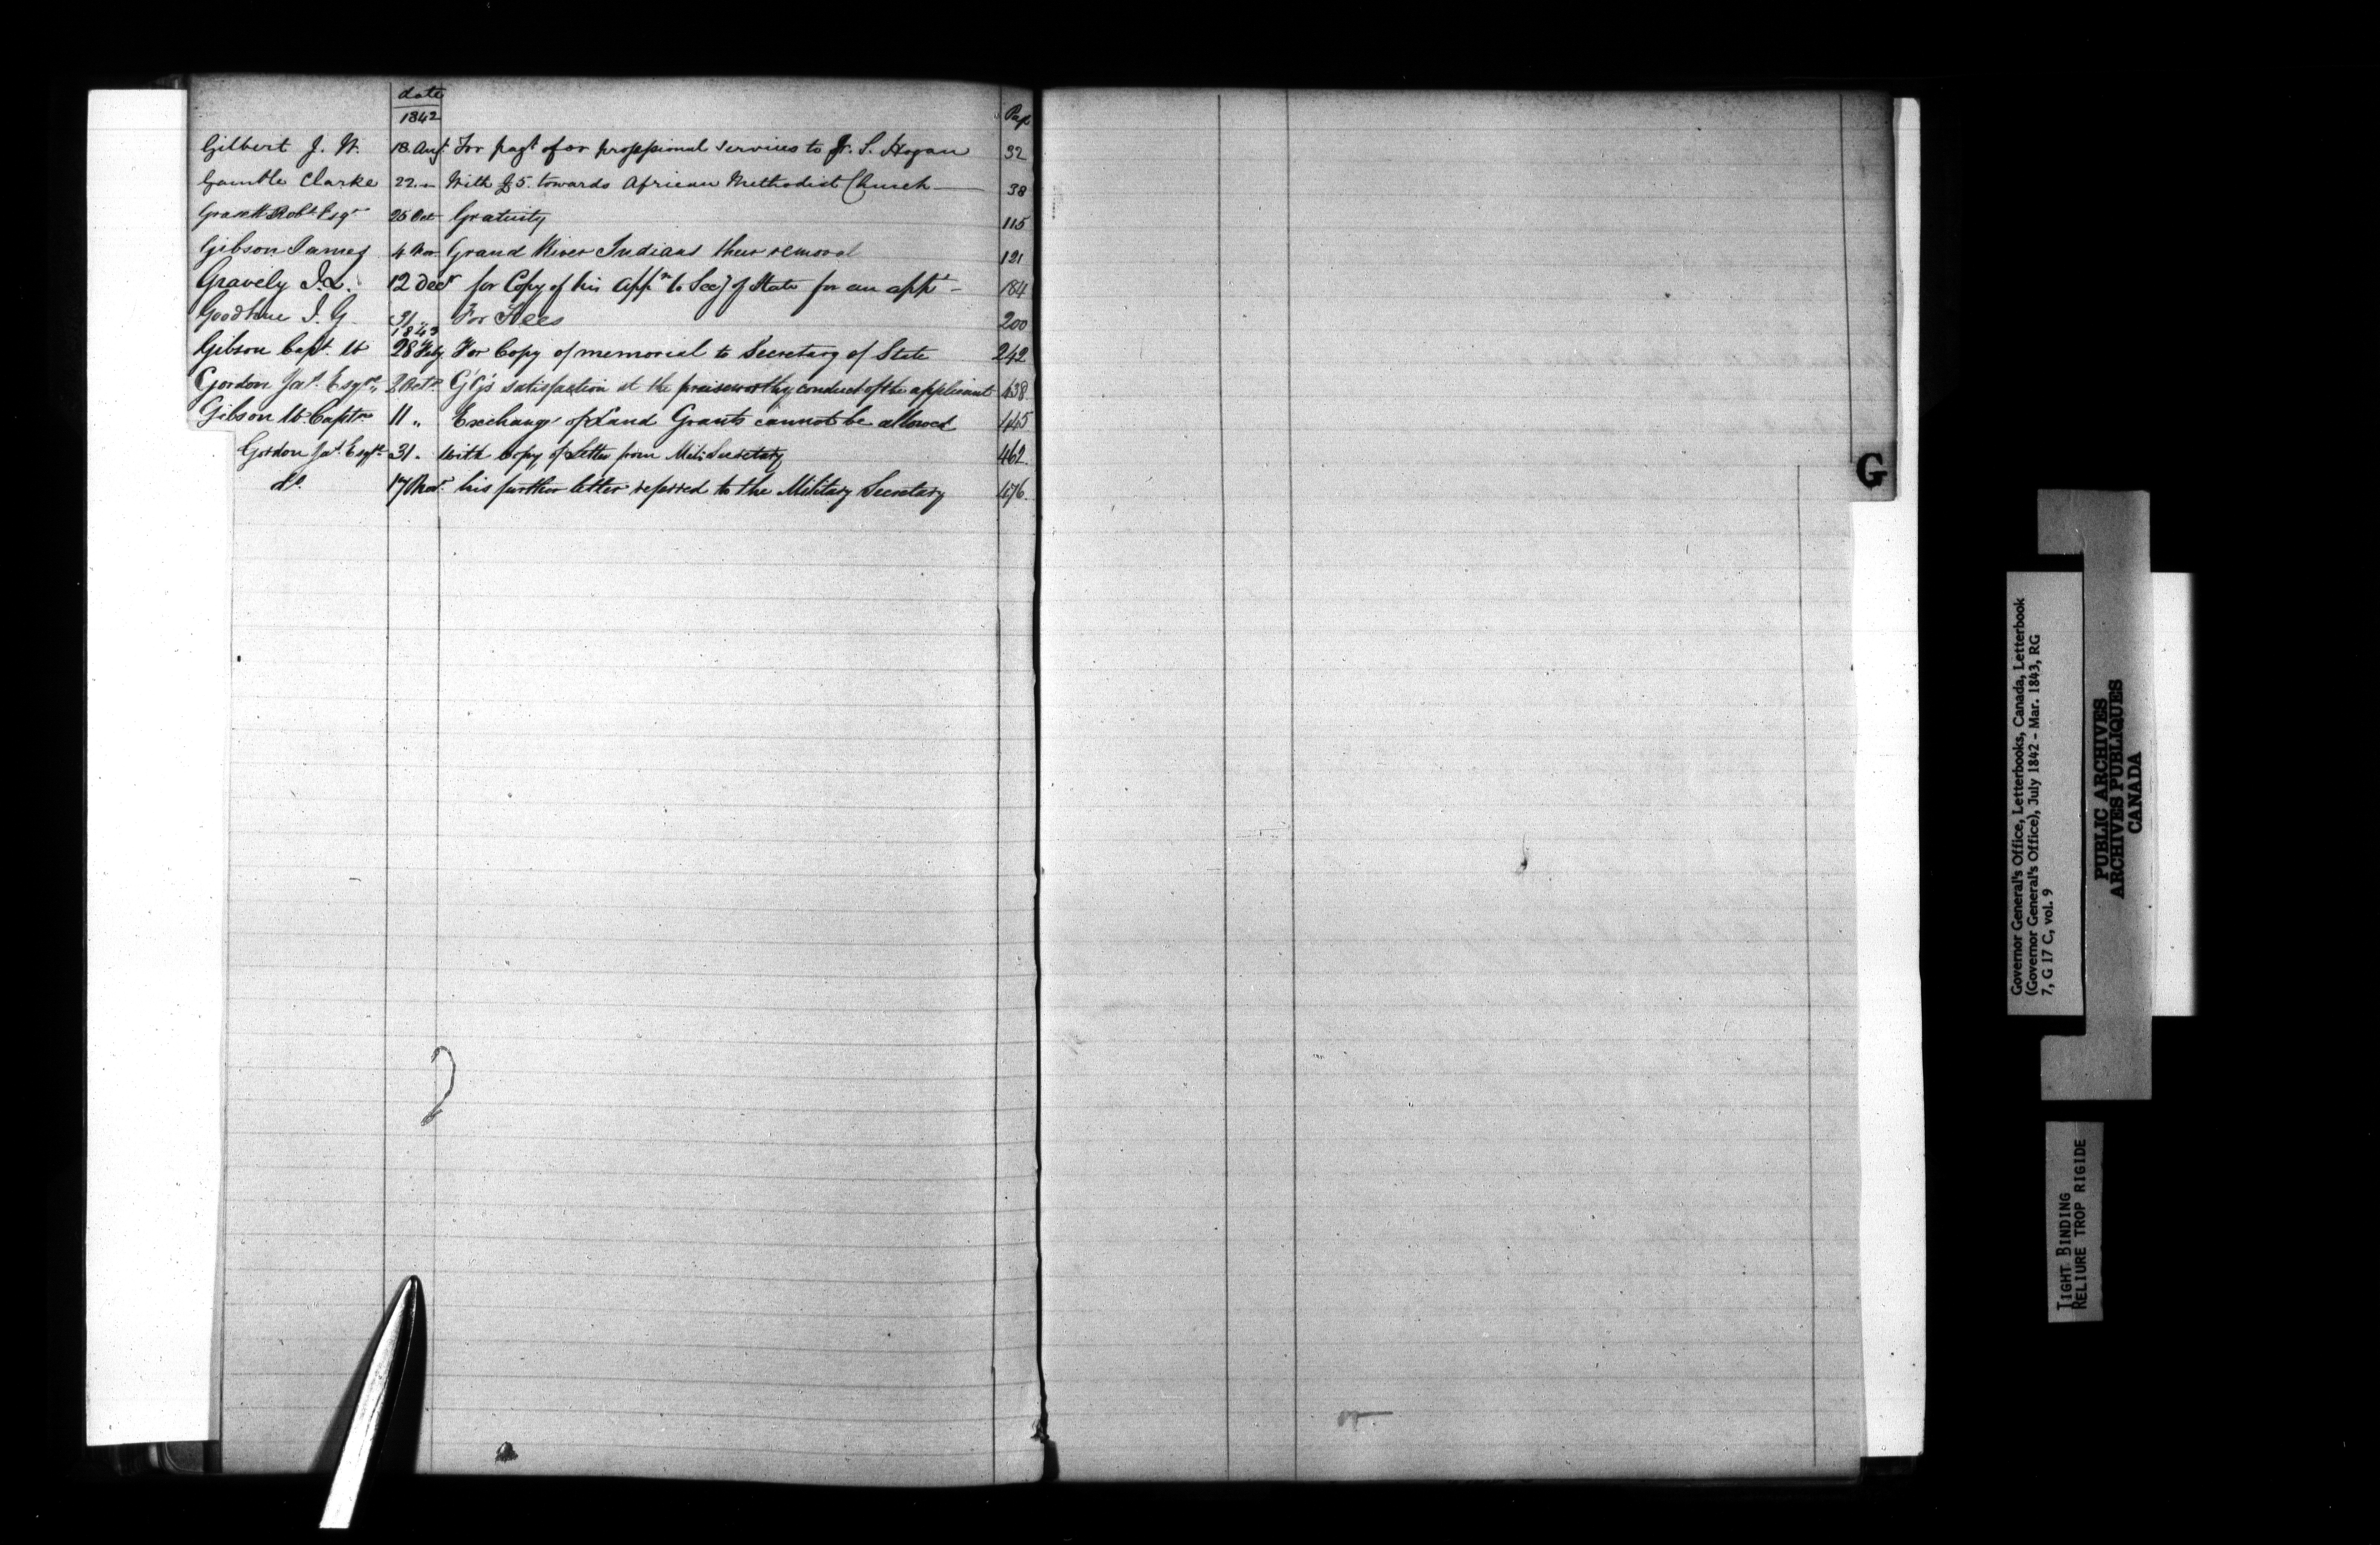 date
1842 Page
Gilbert J. W. 18 Augt For payt of or professional services to Jr. S. Hogan 32
Gamble Clarke 22 — With £5. towards African Methodist Church — 38
Grasett Robt Esqr 25 Oct Gratuity 115
Gibson James 4 Nov Grand River Indians their removal 121
Gravely I. L. 12 Decr for Copy of his Appn to Secy of State for an appt - 184
Goodhue I. G. 31 „ For Fees 200
1843
Gibson Capt. W 28 Feby For Copy of memorial to Secretary of State 242
Gordon Jas. Esqre., 2 Octr. G'G's satisfaction at the praiseworthy conduct of the applicant 438
Gibson W. Captn 11 „ Exchange of Land Grants cannot be allowed 445
Gordon Jas. Esqre 31 „ with copy of Letter from Mily Secretary 462.
do. 17 Nov. his further letter referred to the Military Secretary 476.
G
Governor General's Office, Letterbooks, Canada, Letterbook
(Governor General's Office), July 1842 - Mar. 1843, RG
7, G 17 C, vol. 9
PUBLIC ARCHIVES
ARCHIVES PUBLIQUES
CANADA
TIGHT BINDING
RELIURE TROP RIGIDE